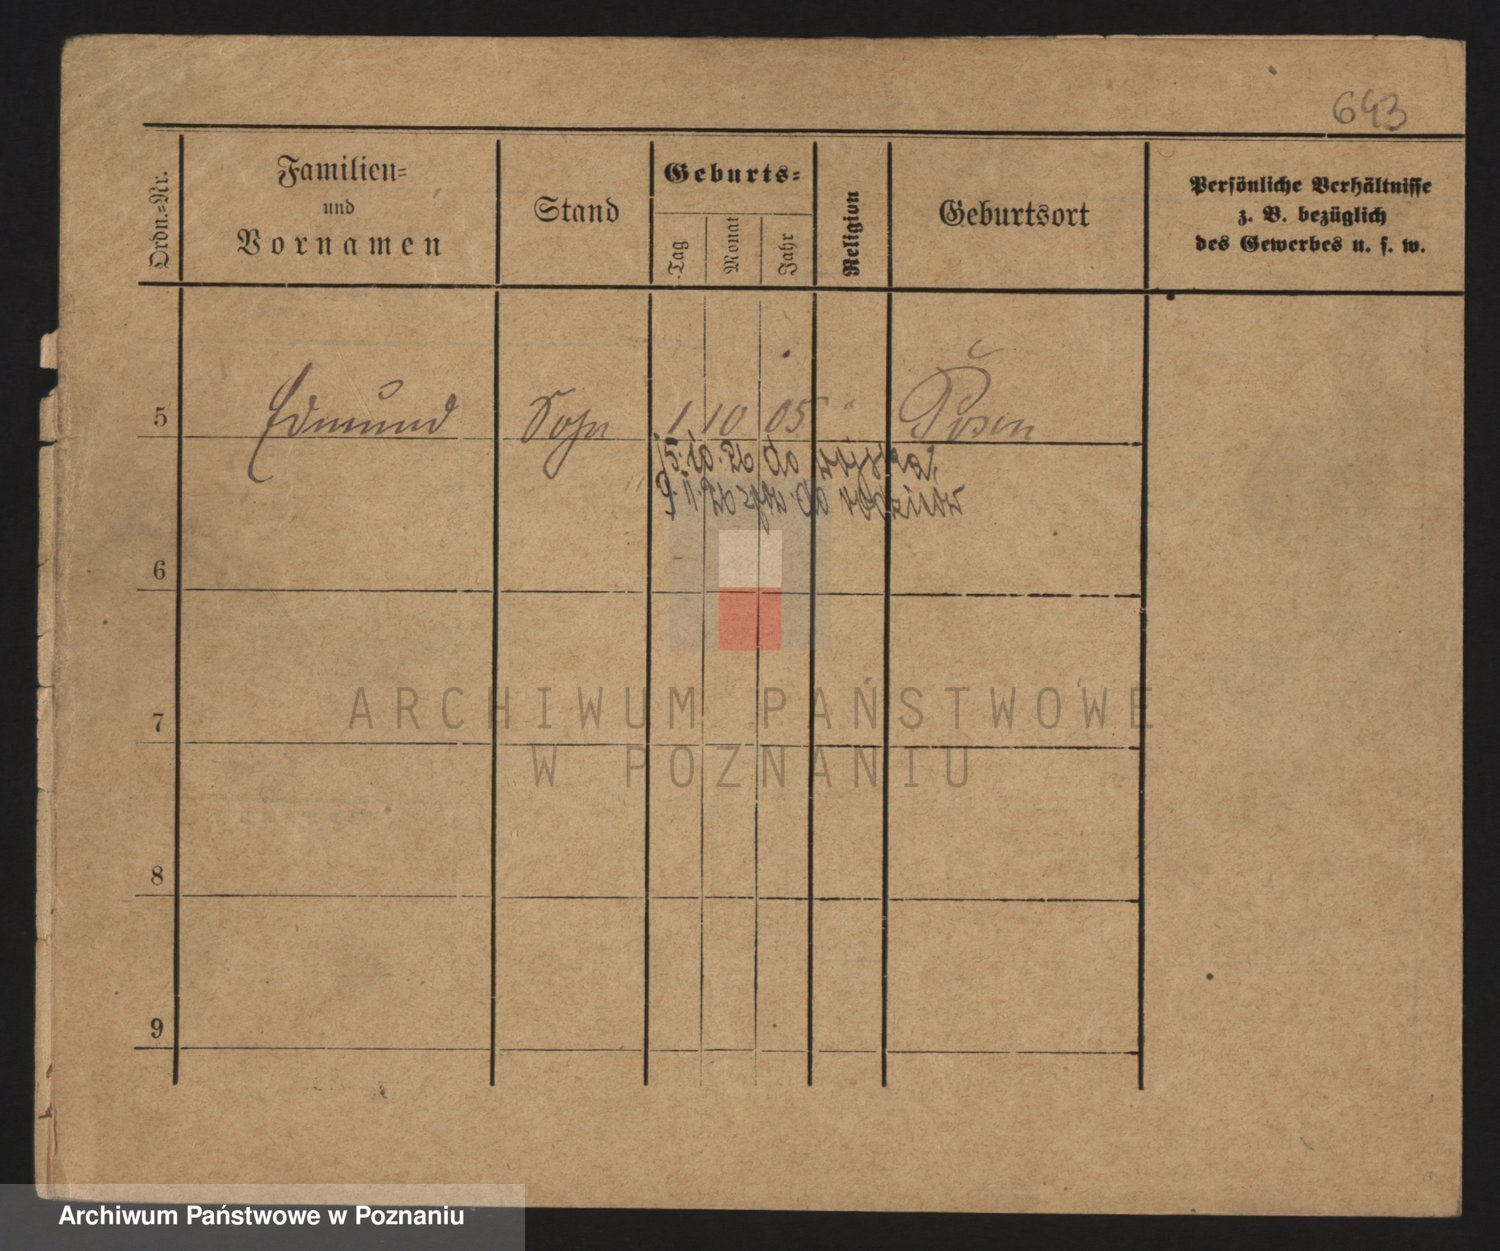 643
Ordn.=Nr.
Familien=
und
Vornamen
Stand
Geburts=
Tag
Monat
Jahr
Religion
Geburtsort
Persönliche Verhältnisse
z. B. bezüglich
des Gewerbes u. s. w.
5 Edmund Sohn 1 10 05 " Posen
6
7
8
9
ARCHIWUM PAŃSTWOWE
W POZNANIU
Archiwum Państwowe w Poznaniu